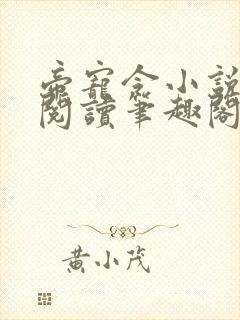 帝寵令小說
閱讀筆趣閣
黃小茂